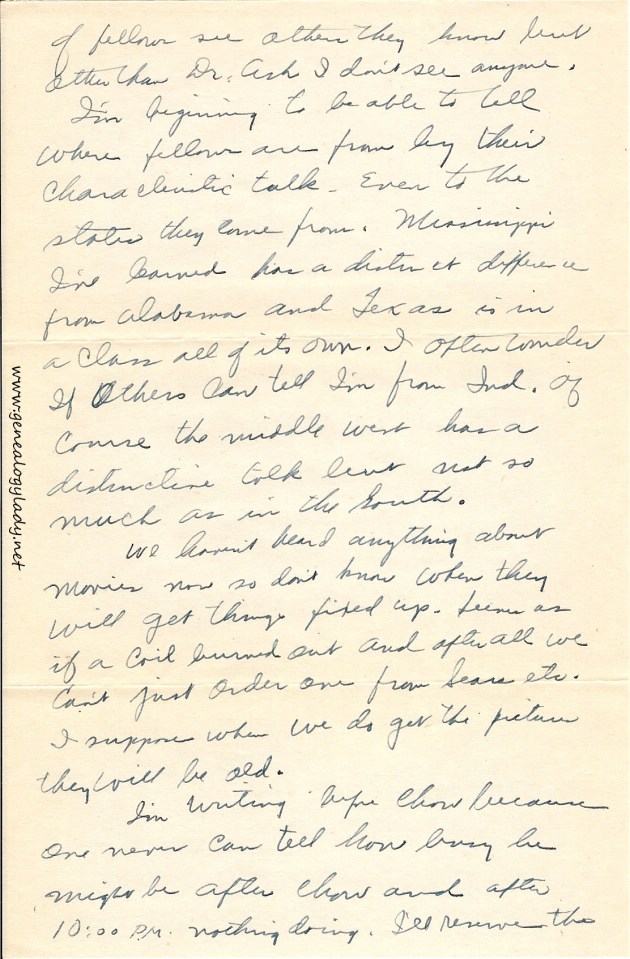 of fellows see others they know but
other than Dr. Ash I don't see anyone.
I'm beginning to be able to tell
where fellows are from by their
characteristic talk - Even to the
states they come from. Mississippi
I've learned has a distinct difference
from Alabama and Texas is in
a class all of its own. I often wonder
If Others can tell I'm from Ind. Of
course the middle west has a
distinctive talk but not so
much as in the South.
We haven't heard anything about
movies now so don't know when they
will get things fixed up. Seems as
if a coil burned out and after all we
can't just order one from Sears etc.
I suppose when we do get the picture
they will be old.
I'm writing before chow because
one never can tell how busy he
might be after chow and after
10:00 P.M. nothing doing. I'll reserve the
www.genealogylady.net